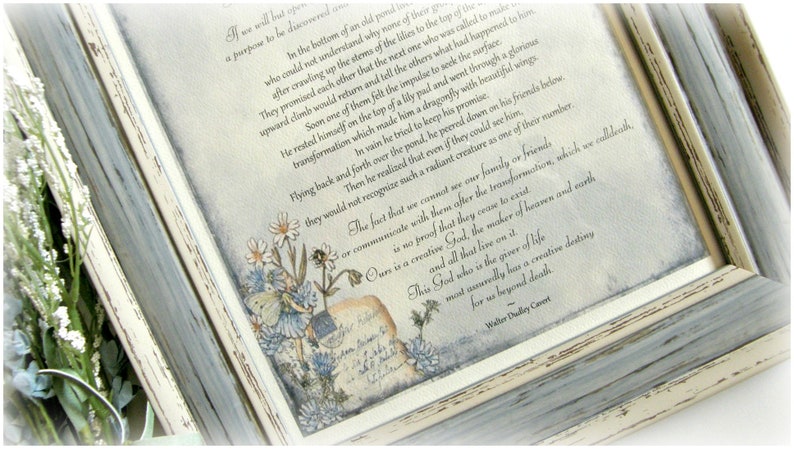 If we will but open
a purpose to be discovered and
In the bottom of an old pond
who could not understand why none of their
after crawling up the stems of the lilies to the top of the
They promised each other that the next one who was called to make
upward climb would return and tell the others what had happened to him.
Soon one of them felt the impulse to seek the surface.
He rested himself on the top of a lily pad and went through a glorious
transformation which made him a dragonfly with beautiful wings.
In vain he tried to keep his promise.
Flying back and forth over the pond, he peered down on his friends below.
Then he realized that even if they could see him,
they would not recognize such a radiant creature as one of their number.
The fact that we cannot see our family or friends
or communicate with them after the transformation, which we calldeath,
is no proof that they cease to exist.
Ours is a creative God, the maker of heaven and earth
and all that live on it.
This God who is the giver of life
most assuredly has a creative destiny
for us beyond death.
~
Walter Dudley Cavert